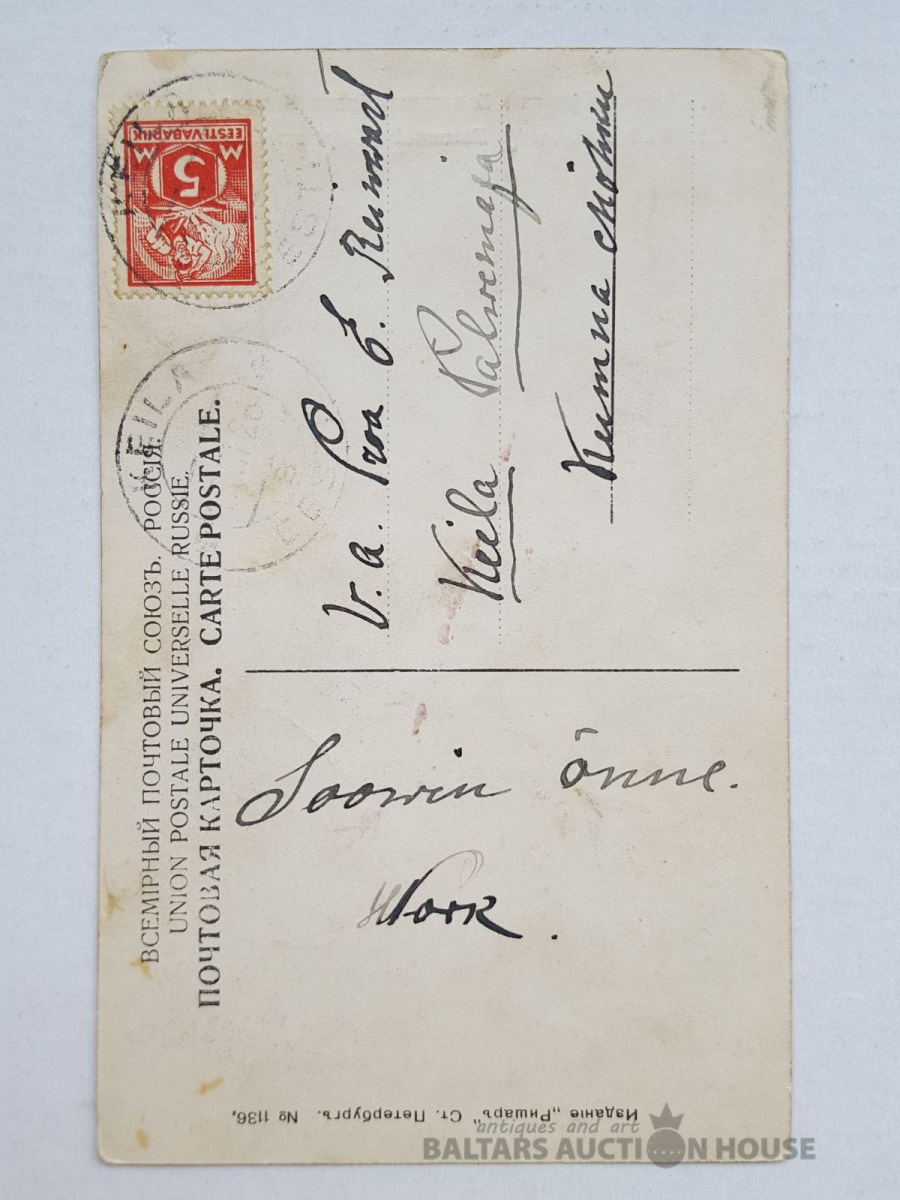 ВСЕМІРНЫЙ ПОЧТОВЫЙ СОЮЗЪ. РОССІЯ.
UNION POSTALE UNIVERSELLE RUSSIE
ПОЧТОВАЯ КАРТОЧКА. CARTE POSTALE.
EESTI VABARIIK
M 5 M
KEILA
EESTI
KEILA
EESTI
V. a. Proa E.
Keila
Kumna mõisa
Soowin õnne.
Изданіе „Ришаръ“, Ст. Петербургъ. № 1136,
antiques and art
BALTARS AUCTION HOUSE